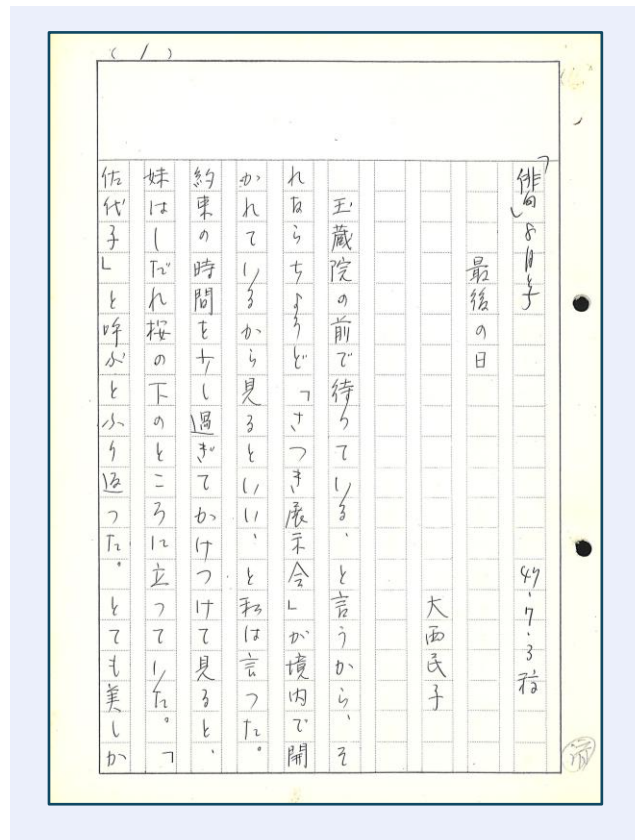 (1)
「俳句」8月号 47.7.3 稿
最後の日
大西民子
玉蔵院の前で待つている、と言うから、そ
れならちようど「さつき展示会」が境内で開
かれているから見るといい、と私は言つた。
約束の時間を少し過ぎてかけつけて見ると、
妹はしだれ桜の下のところに立つていた。「
佐代子」と呼ぶとふり返つた。とても美しか